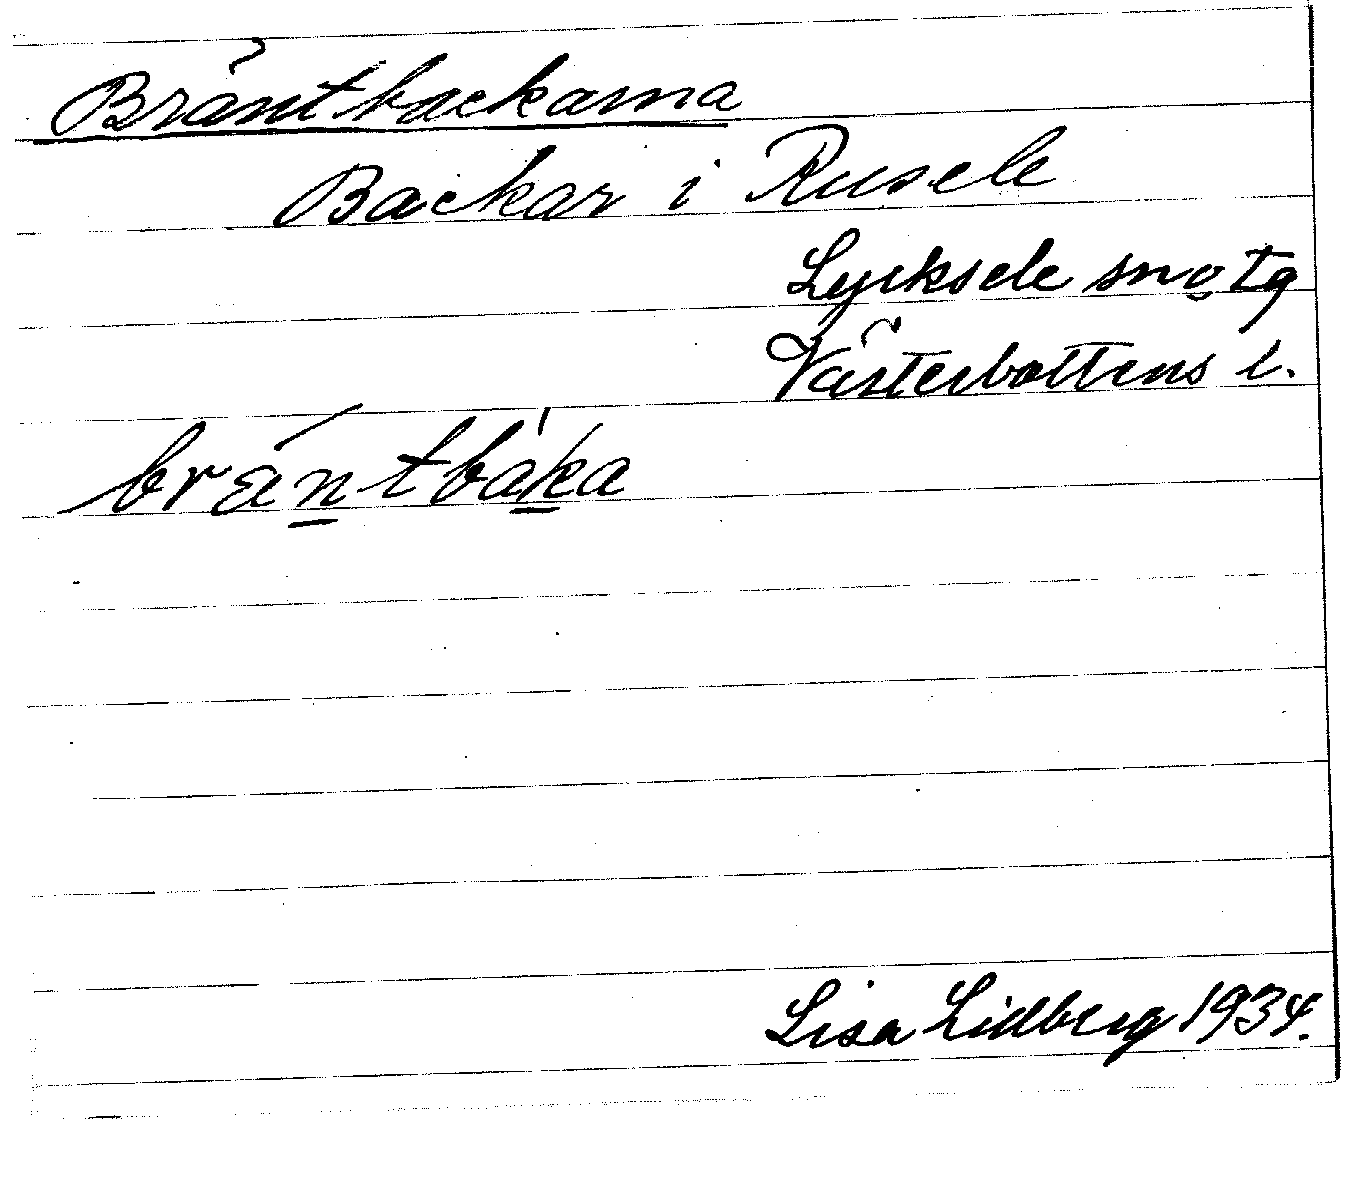 Bräntbackarna
Backar i Rusele
Lycksele sn o tg
Västerbottens l.
bräntbáka
Lisa Lidberg 1934.